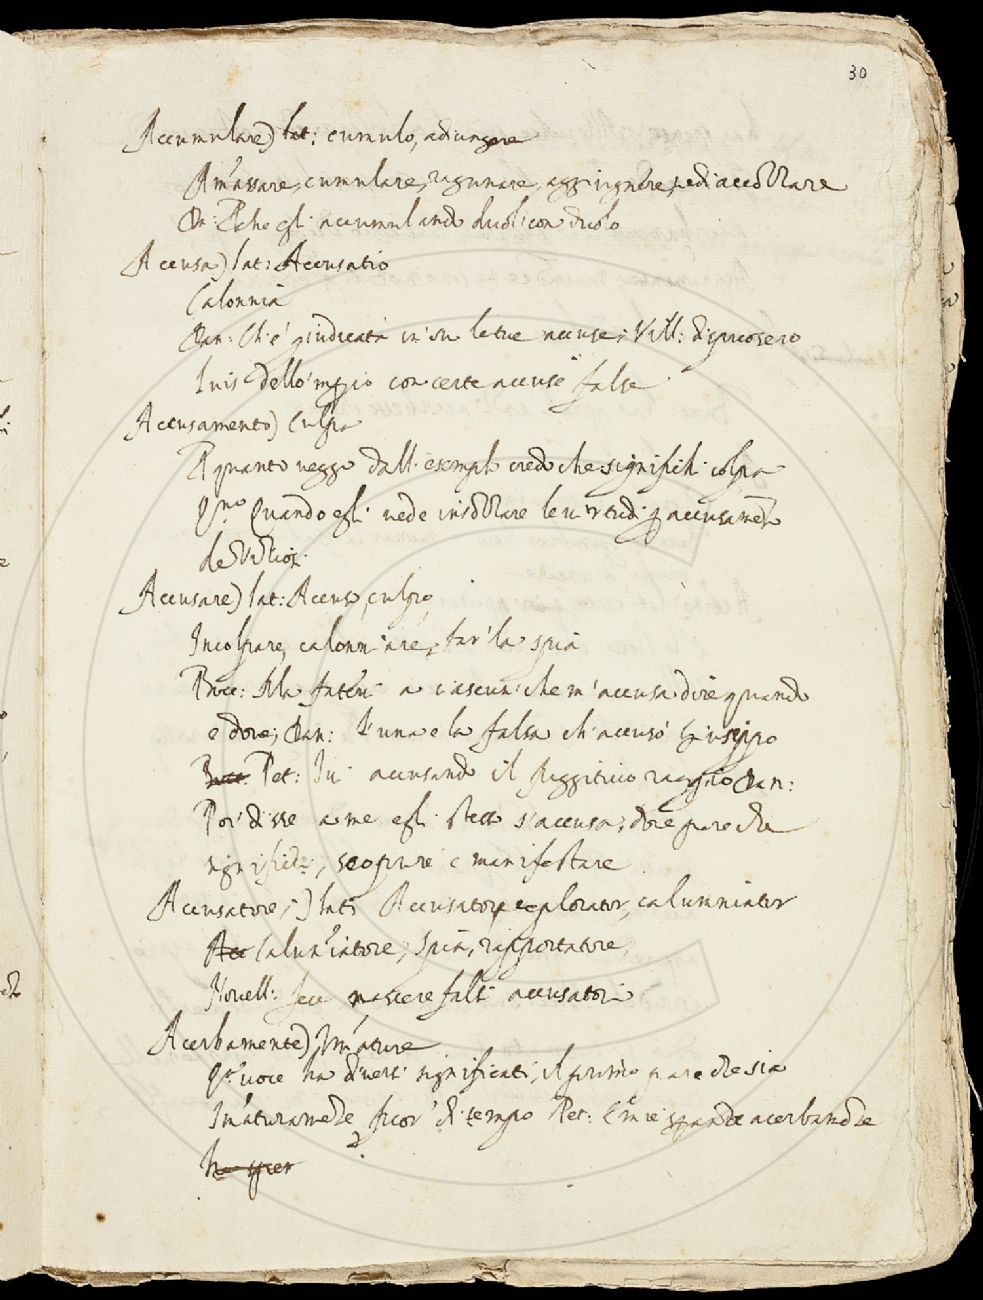 30
Accumulare) lat: cumulo, adiungere
Am̃assare, cumulare, ragunare, aggiugnere, ed accozzare
Dn: Pche egli accumulando duol' con duolo
Accusa) lat: Accusatio
Calonnia
Dan: Ch' e' giudicata in su le tue accuse; Vill: disposero
dello con certe accuse false
Accusamento) Culpa
P quanto veggo dall' esemplo credo che significhi colpa
Quando egli vede le virtudi p accusamẽto
de
Accusare) lat: Accuso, culpo,
Incolpare, calonniare, far' la spia
Bocc: Alla a ciascun' che m' accusa dire quando
e dove; Dan: L' una e la falsa ch' accuso' Giuseppo
Pet: accusando il fuggitivo raggio Dan:
Poi disse a me egli stesso s' accusa; dove pare che
significhi, scoprire e manifestare
Accusatore,) lat: Accusator, explorator, calumniator
Acc Calun̄iatore, Spia, rapportatore,
Novell: fece nascere falsi accusatori
Acerbamente) Im̃ature
voce ha diversi significati, il primo pare che sia
Im̃aturamente, fuor' di tempo Pet: spande acerbamente